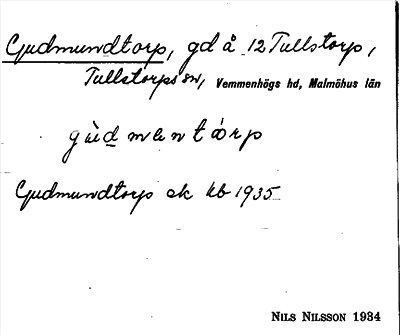 Gudmundtorp, gd å 12 Tullstorp,
Tullstorps sn, Vemmenhögs hd, Malmöhus län
gùd mun tórp
Gudmundtorp ek kb 1935
NILS NILSSON 1934